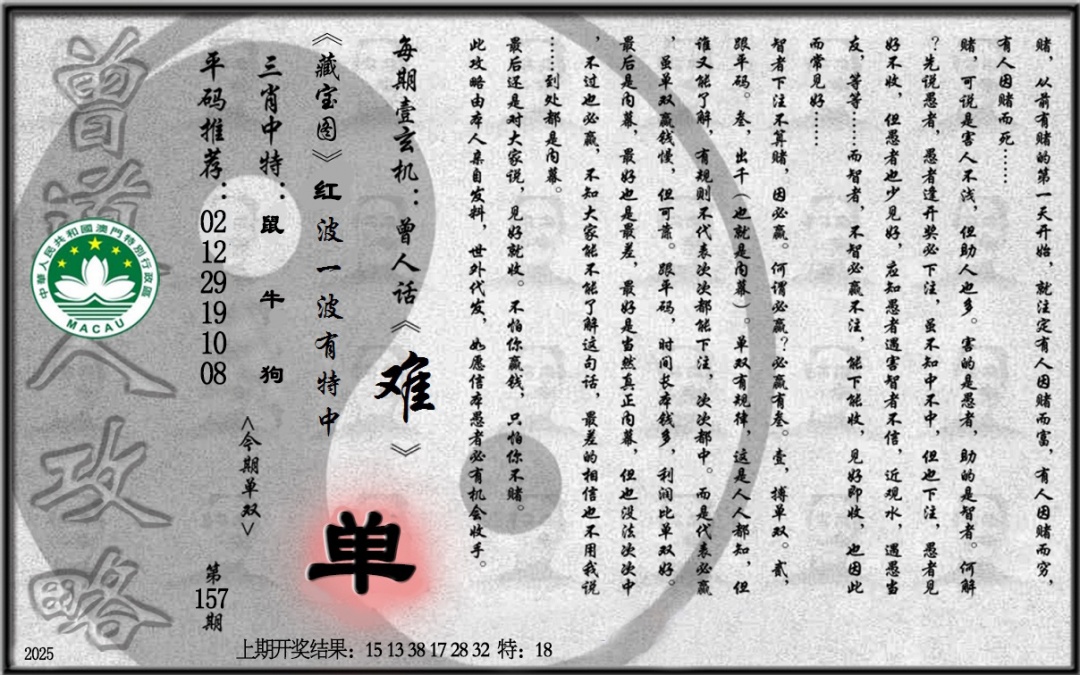 赌，从前有赌的第一天开始，就注定有人因赌而富，有人因赌而穷，
有人因赌而死……
赌，可说是害人不浅，但助人也多。害的是愚者，助的是智者。何解
？先说愚者，愚者逢开奖必下注，虽不知中不中，但也下注，愚者见
好不收，但愚者也少见好，应知愚者遇害智者不信，近观水，遇愚当
友，等等……而智者，不智必赢不注，能下能收，见好即收，也因此
而常见好……
智者下注不算赌，因必赢。何谓必赢？必赢有叁。壹，搏单双。贰，
跟平码。叁，出千（也就是内幕）。单双有规律，这是人人都知，但
谁又能了解，有规则不代表次次都能下注，次次都中。而是代表必赢
，虽单双赢钱慢，但可靠。跟平码，时间长本钱多，利润比单双好。
最后是内幕，最好也是最差，最好是当然真正内幕，但也没法次次中
，不过也必赢，不知大家能不能了解这句话，最差的相信也不用我说
……到处都是内幕。
最后还是对大家说，见好就收。不怕你赢钱，只怕你不赌。
此攻略由本人亲自发料，世外代发，如愿信本愚者必有机会收手。
每期壹玄机：曾人话《难》
《藏宝图》红波一波有特中
单
三肖中特：鼠 牛 狗
<今期单双>
平码推荐：02 12 29 19 10 08
第157期
曾道人攻略
中華人民共和國澳門特別行政區
MACAU
2025
上期开奖结果：15 13 38 17 28 32 特：18